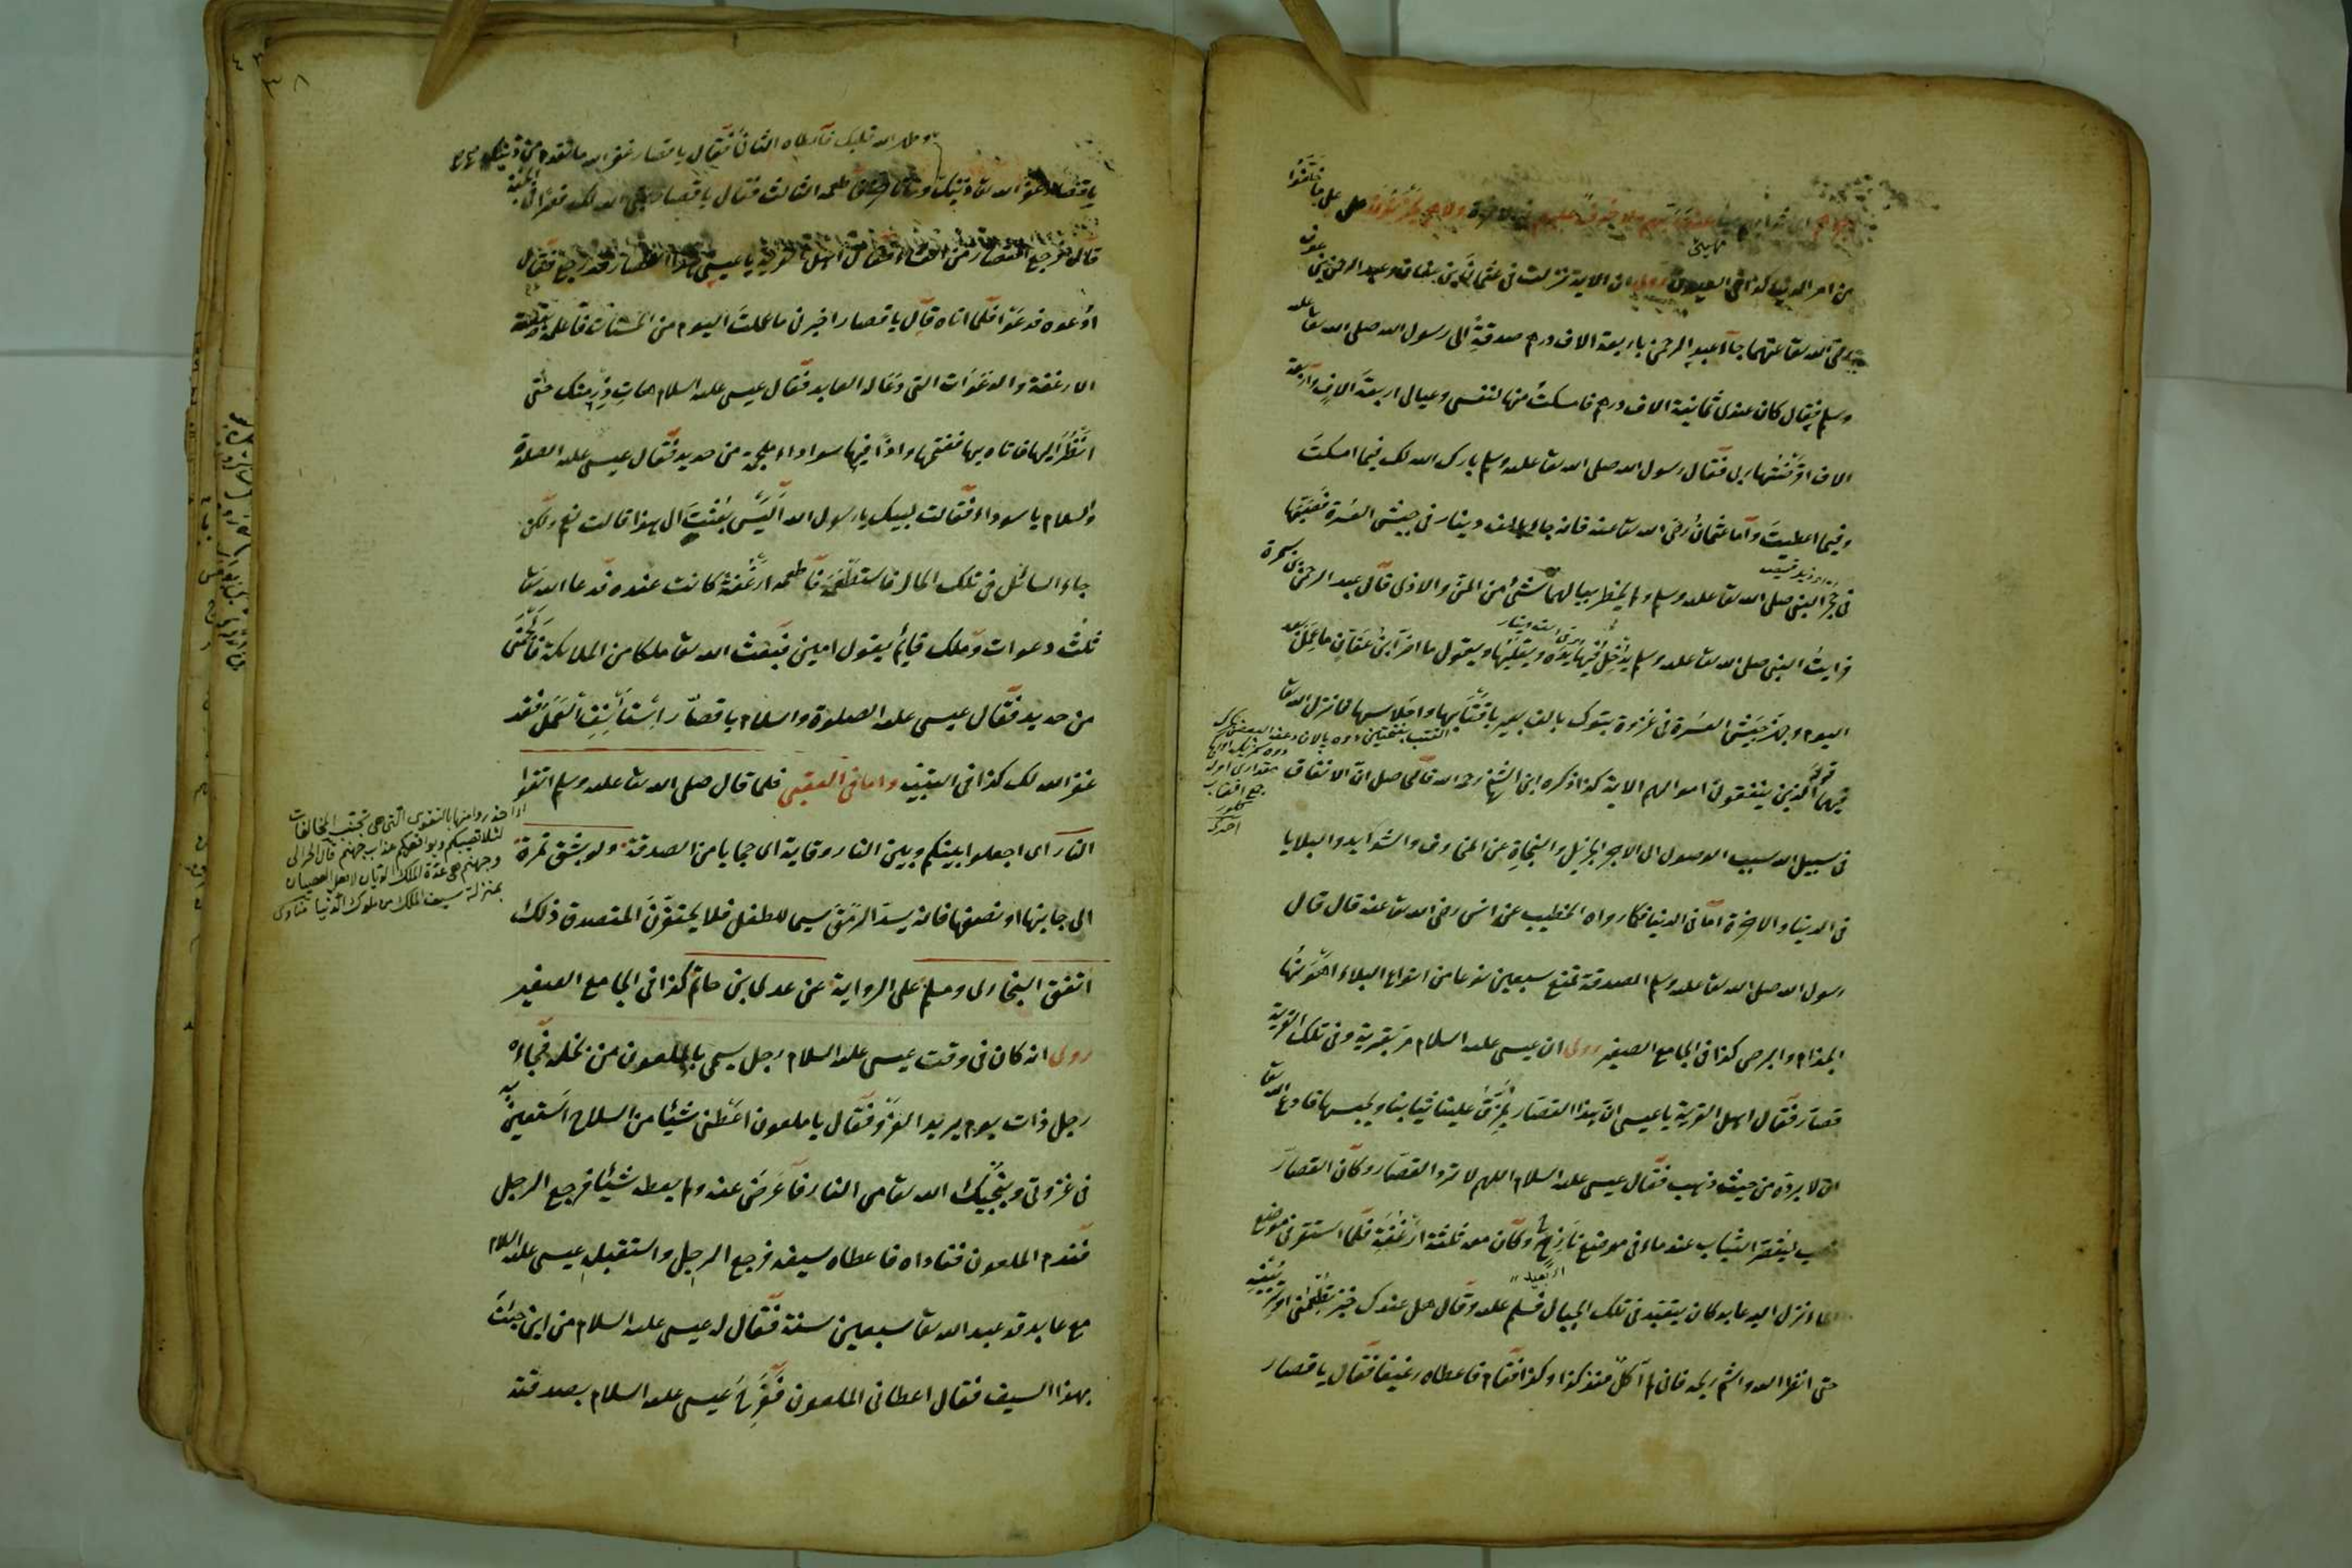 ولا هم يحزنون على ما خلفوا
من امر الدنيا كذا في العيون روى ان الاية نزلت في عثمان بن عفان وعبد الرحمن بن عوف
رضى الله تعا عنهما جاء عبد الرحمن باربعة الاف درهم صدقة الى رسول الله صلى الله تعا عليه
وسلم فقال كان عندى ثمانية الاف درهم فامسكت منها لنفسى وعيالى اربعة الاف واربعة
الاف اقرضتها ربى فقال رسول الله صلى الله تعا عليه وسلم بارك الله لك فيما امسكت
وفيما اعطيت واما عثمان رضى الله تعا عنه فانه جاء بالف دينار في جيش العسرة فصبها
في حجر النبى صلى الله تعا عليه وسلم ولم يخطر ببالهما شئ من المن والاذى قال عبد الرحمن بن سمرة
فرايت النبى صلى الله تعا عليه وسلم يدخل فيها يده ويقلبها ويقول ما اضر ابن عفان ما عمل بعد
اليوم وجهز جيش العسرة في غزوة تبوك بالف بعير باقتابها واحلاسها فانزل الله تعا
فيهما قوله الذين ينفقون اموالهم الاية كذا ذكره ابن الشيخ رحمه الله قالحاصل ان الانفاق
في سبيل الله سبب الوصول الى الاجر الجزيل والنجاة عن المخاوف والشدايد والبلايا
في الدنيا والاخرة اما في الدنيا فكما رواه الخطيب عن انس رضى الله تعا عنه قال قال
رسول الله صلى الله تعا عليه وسلم الصدقة تمنع سبعين نوعا من انواع البلاء اهونها
الجذام والبرص كذا في الجامع الصغير روى ان عيسى عليه السلام مر بقرية وفى تلك القرية
قصار فقال اهل القرية يا عيسى ان هذا القصار يمزق علينا ثيابنا ويحبسها فادع الله تعا
ان لا يرده من حيث ذهب فقال عيسى عليه السلام اللهم لا ترد القصار وكان القصار
ذهب ليقصر الثياب عند ماء في موضع نازح وكان معه ثلثة ارغفة فلما استقر في موضع
الماء نزل اليه عابد كان يتعبد في تلك الجبال فسلم عليه وقال هل عندك خبز تطعمنى او ترينيه
حتى انظر اليه واشم ريحه فانى لم آكل منذ كذا وكذا فقام فاعطاه رغيفا فقال يا قصار
وطهر الله قلبك فاعطاه الثانى فقال يا قصار غفر الله ما تقدم من ذنبك
فاطعمه الثالث فقال يا قصار بنى الله لك قصرا في الجنة
قال فرجع القصار من العشاء فقال اهل القرية يا عيسى هذا القصار قد رجع فقال
ادعوه فدعوا فلما اتاه قال يا قصار اخبرنى ما عملت اليوم من الحسنات فاعلمه بقصة
الارغفة والدعوات التى دعا له العابد فقال عيسى عليه السلام هات رزمتك حتى
انظر اليها فاتاه بها ففتحها واذا فيها سوداء ملجمة من حديد فقال عيسى عليه الصلوة
والسلام يا سوداء فقالت لبيك يا رسول الله أليس بعثت الى هذا قالت نعم ولكن
جاء السائل في تلك الجبال فاستطعمه فاطعمه ارغفة كانت عنده فدعا الله تعا
ثلث دعوات وملك قايم يقول امين فبعث الله تعا ملكا من الملائكة فالجمنى
من حديد فقال عيسى عليه الصلوة والسلام يا قصار استأنف العمل فقد
غفر الله لك كذا في التنبيه واما في العقبى فلما قال صلى الله تعا عليه وسلم اتقوا
النار اى اجعلوا بينكم وبين النار وقاية اى حجابا من الصدقة ولو بشق تمرة
اى جانبها او نصفها فانه يسد الرمق سيما للطفل فلا يحتقرن المتصدق ذلك
اتفق البخارى ومسلم على الرواية عن عدى بن حاتم كذا في الجامع الصغير
روى انه كان في وقت عيسى عليه السلام رجل يسمى بالملعون من بخله فجاءه
رجل ذات يوم يريد الغزو فقال يا ملعون اعطنى شيئا من السلاح استعين به
في غزوتى وينجيك الله تعا من النار فاعرض عنه ولم يعط شيئا فرجع الرجل
فندم الملعون فناداه فاعطاه سيفه فرجع الرجل واستقبل عيسى عليه السلام
مع عابد قد عبد الله تعا سبعين سنة فقال له عيسى عليه السلام من اين جئت
بهذا السيف فقال اعطانى الملعون ففرح عيسى عليه السلام بصدقته
احذروا منها بالتقوى التى هى تجنب المخالفات
لئلا تصيبكم ويوافقكم عذاب جهنم قال الحرالى
وجهنم هى عدة الملك الديان لاهل العصيان
بمنزلة سيف الملك من ملوك الدنيا مناوى